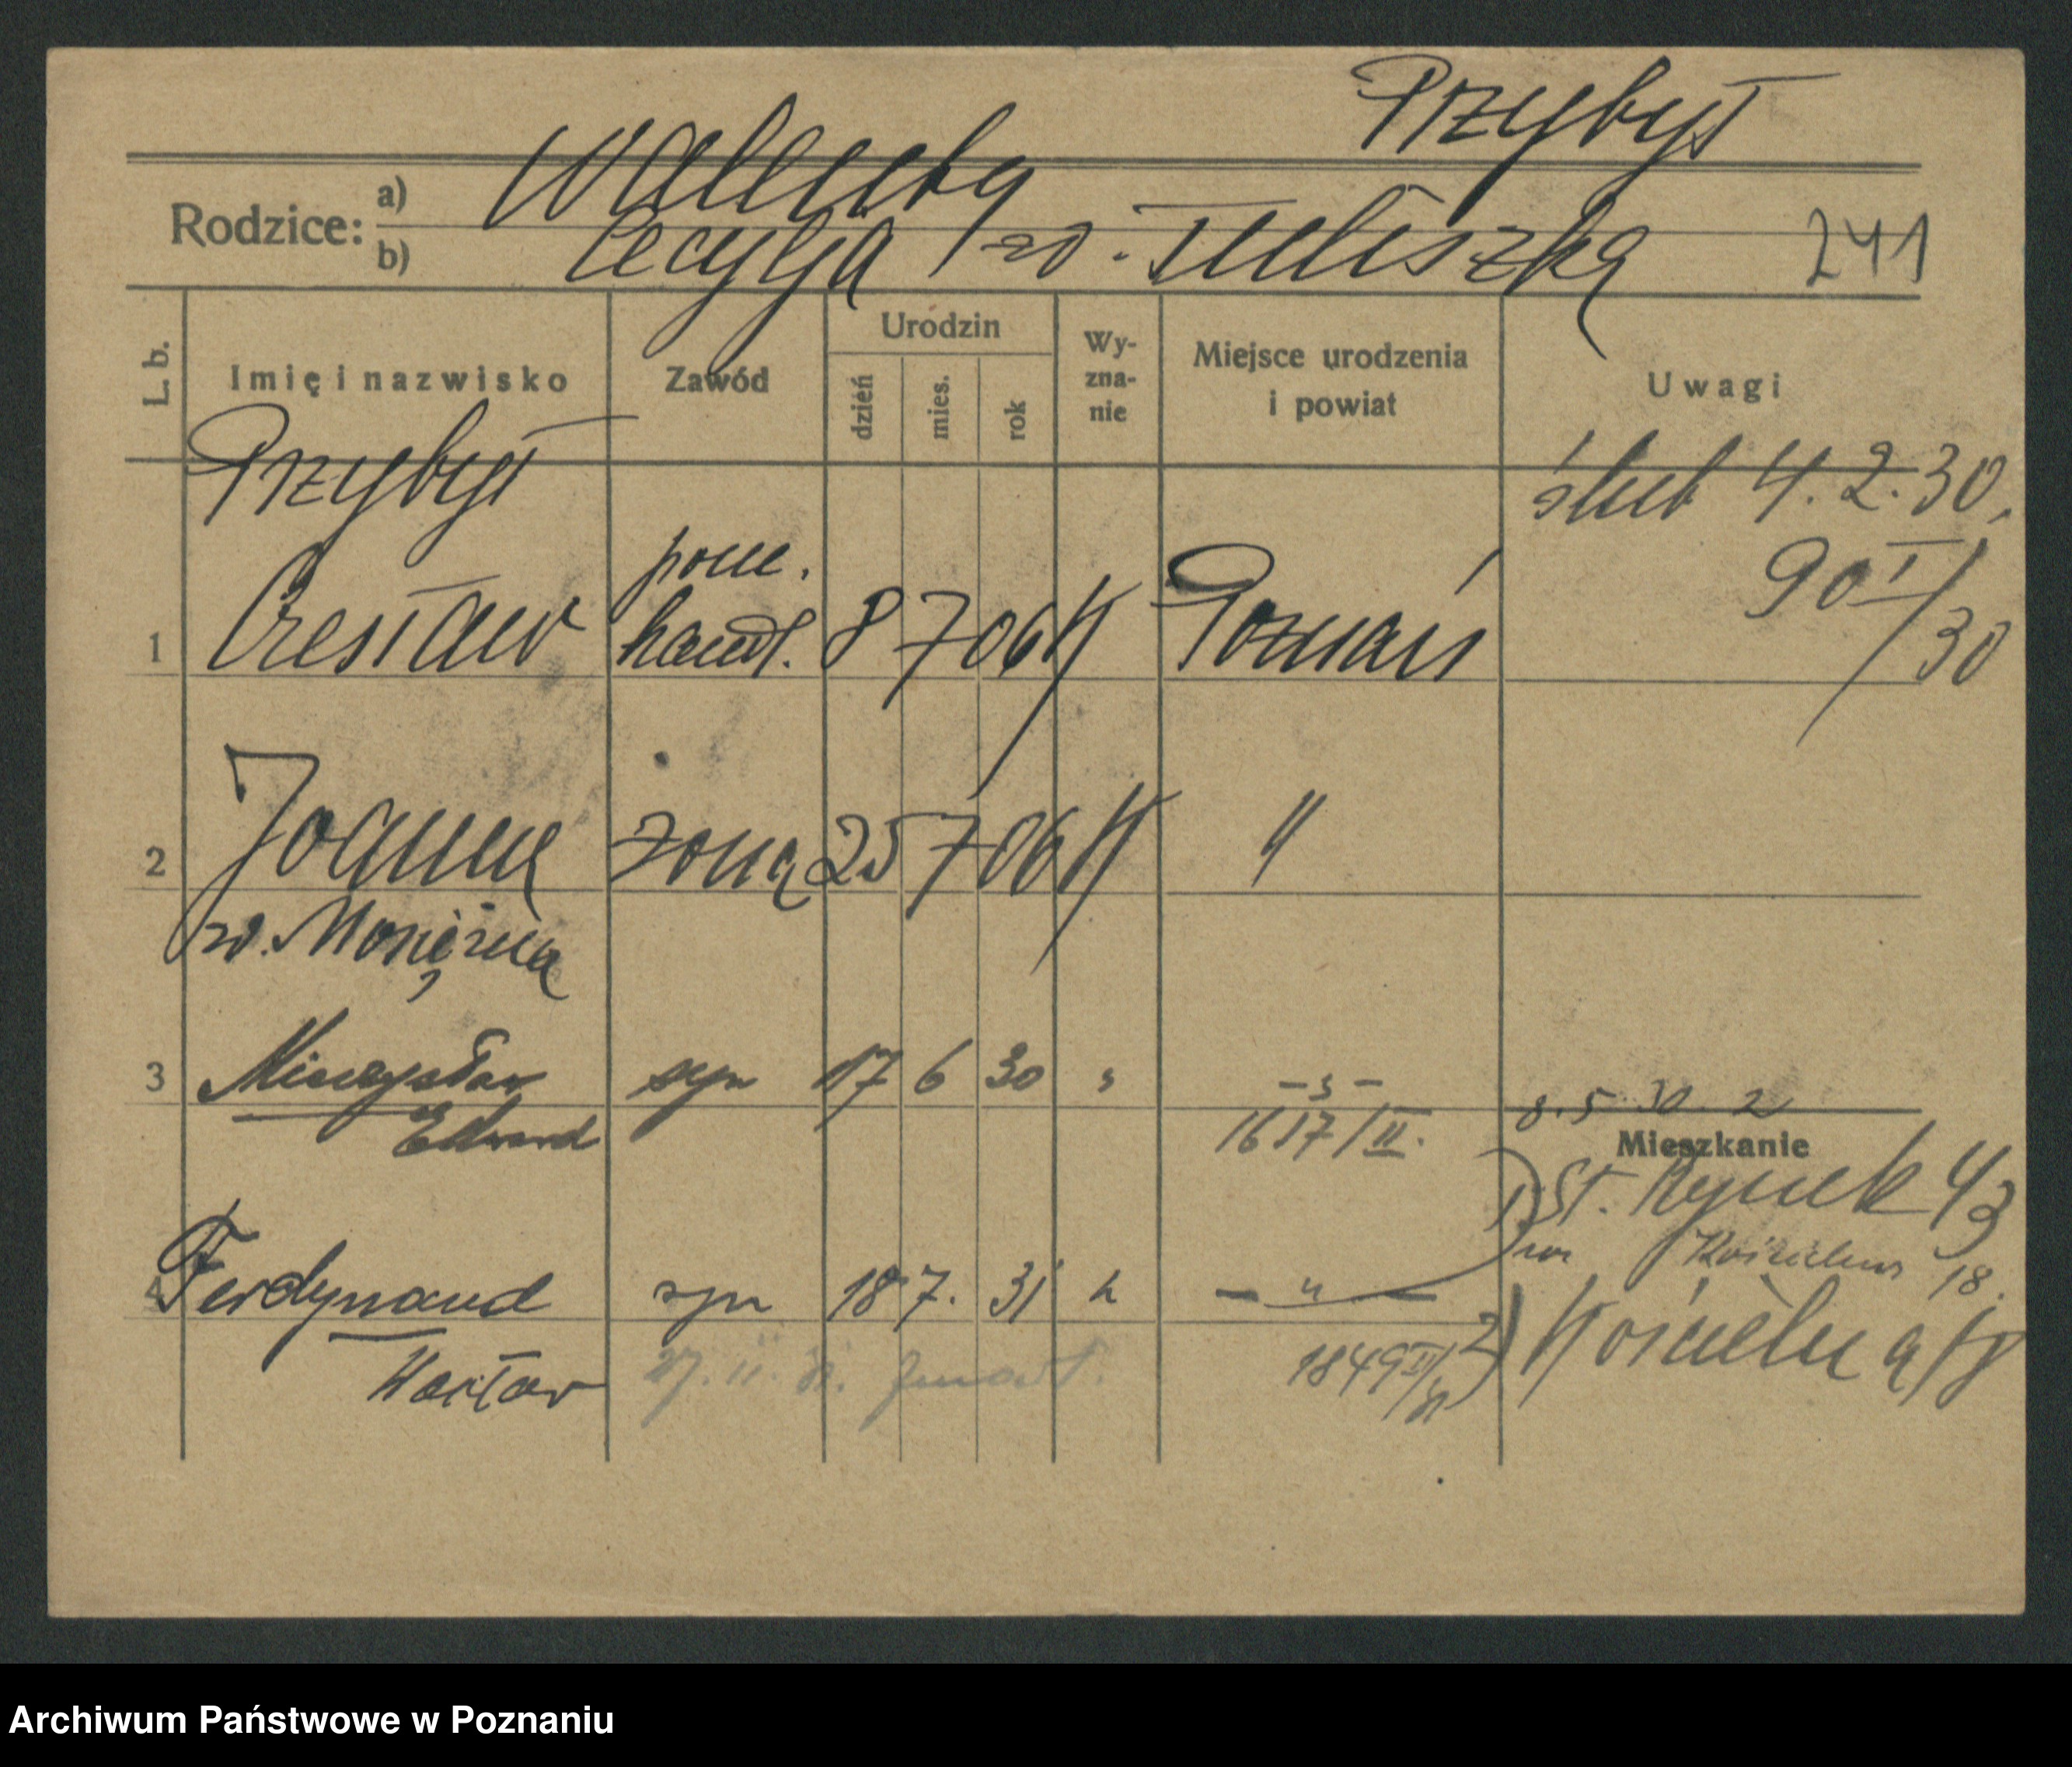 Przybył
Rodzice: a) Walenty
b) Cecylja 241
L. b. Imię i nazwisko Zawód Urodzin dzień mies. rok Wy-zna-nie Miejsce urodzenia i powiat Uwagi
Przybył ślub 4.2.30.
90 I/30
pom.
1 Czesław handl. 8 7 06 K Poznań
2 Joanna żona 25 7 06 K "
3 Mieczysław syn 17 6 30 " - " -
Edward 1617/II. 8.5.30. 2
Mieszkanie
1) St. Rynek 43
18.
4 Ferdynand syn 18 7. 31 " - " -
Wacław 27.11.31. zmarł. 1849 II/31 2) Kościelna 18
Archiwum Państwowe w Poznaniu